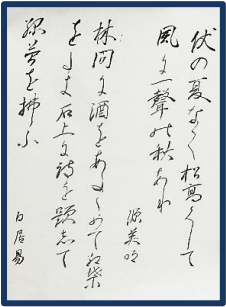 伏の夏なく松高くして
風に一聲の秋あり
源英明
林間に酒をあたゝめて紅葉
をたき石上に詩を題して
緑苔を拂ふ
白居易